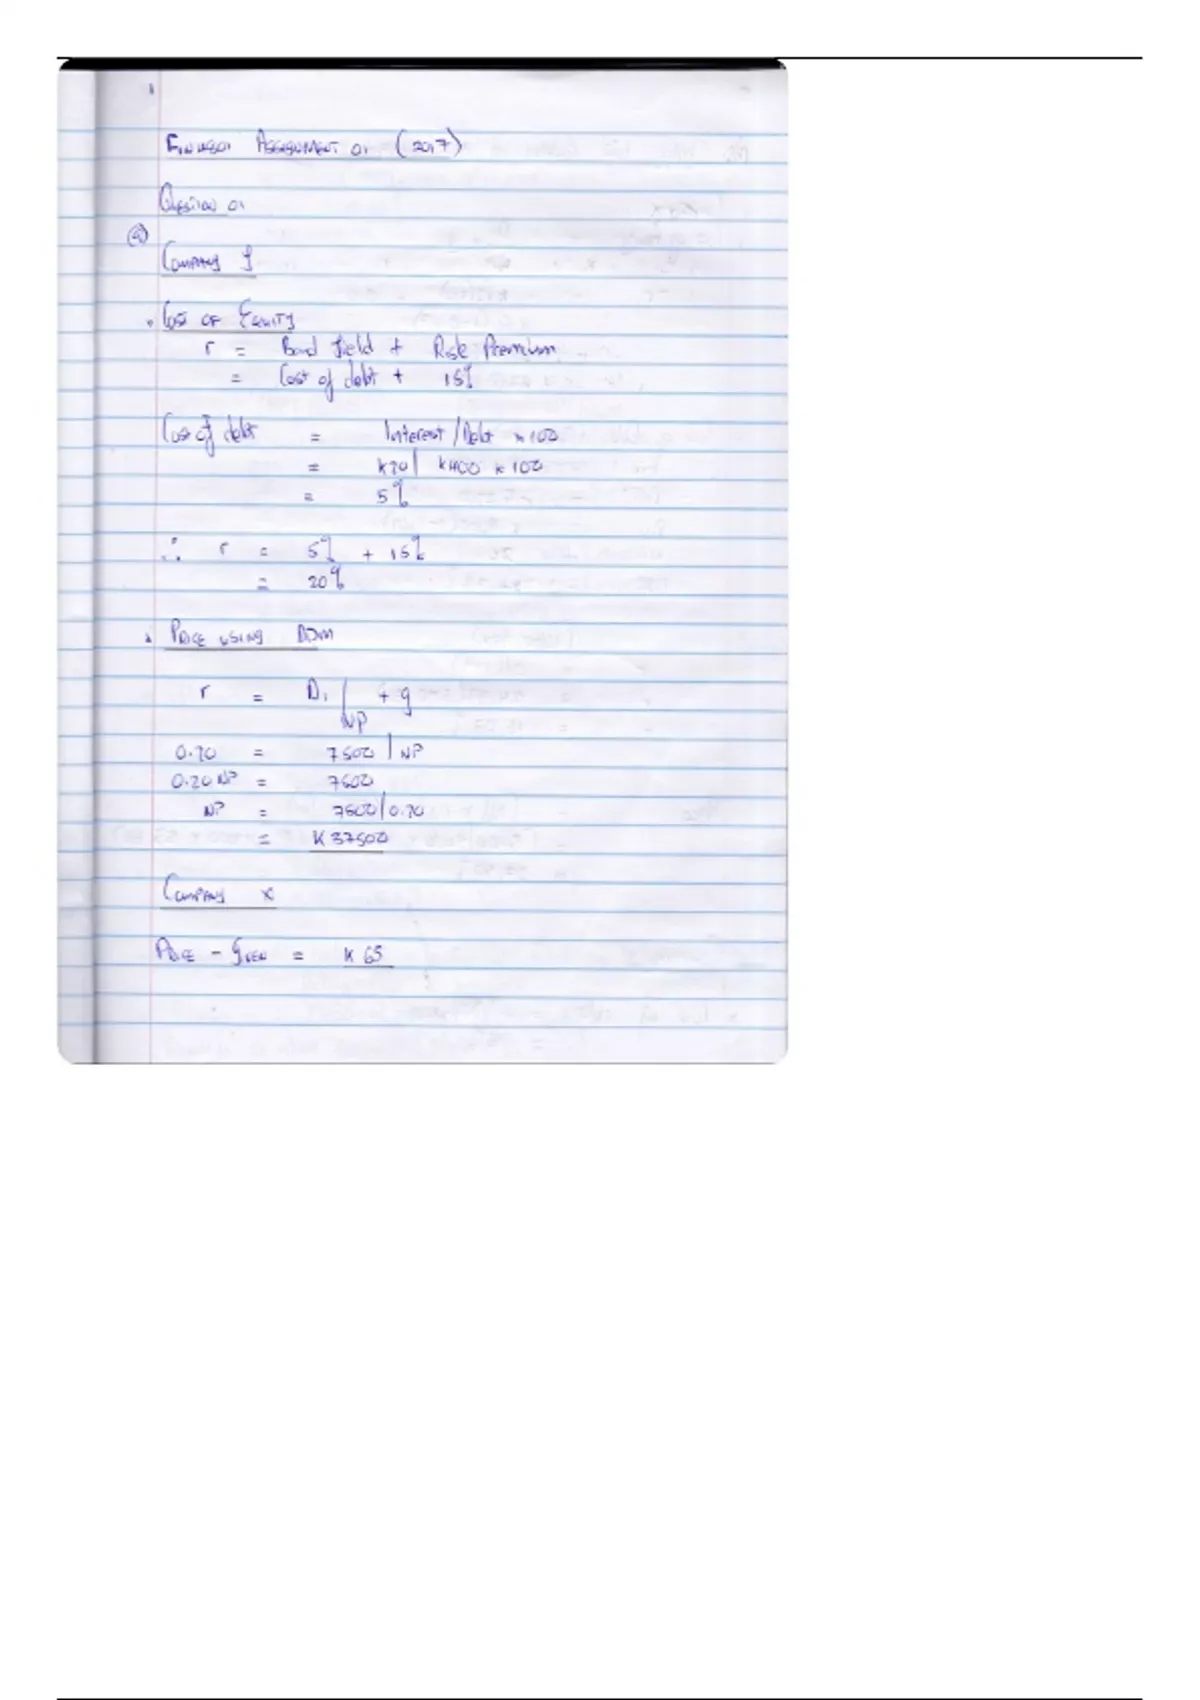 1
Assignment 01 (2017)
Question 01
(a)
Company Y
Cost of Equity
r = Bond Yield + Risk Premium
= Cost of debt + 15%
Cost of debt = Interest / Debt x 100
= K20 / K400 x 100
= 5%
∴ r = 5% + 15%
= 20%
Price using DDM
r = D1 / NP + g
0.20 = 7500 / NP
0.20 NP = 7500
NP = 7500 / 0.20
= K37500
Company X
Price - given = K65